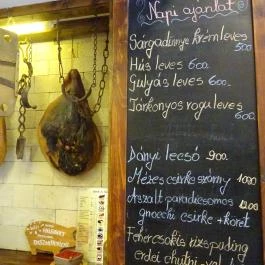 Napi ajánlat
Sárgadinnye krémleves
500
Hús leves 600.
Gulyás leves 600.
Tárkonyos raguleves
600.
Dányi lecsó 900.
Mézes csirke szárny 1000
Aszalt paradicsomos 1200
gnocchi csirke + köret
Fehércsokis rizspuding
erdei